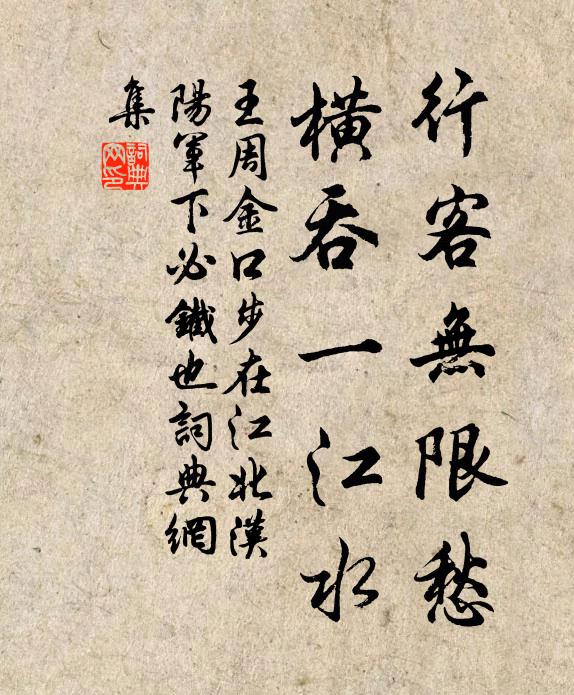 行客無限愁
橫吞一江水
王周金口步在江北漢
陽軍下必鐵也詞典網
集
詞典
网印